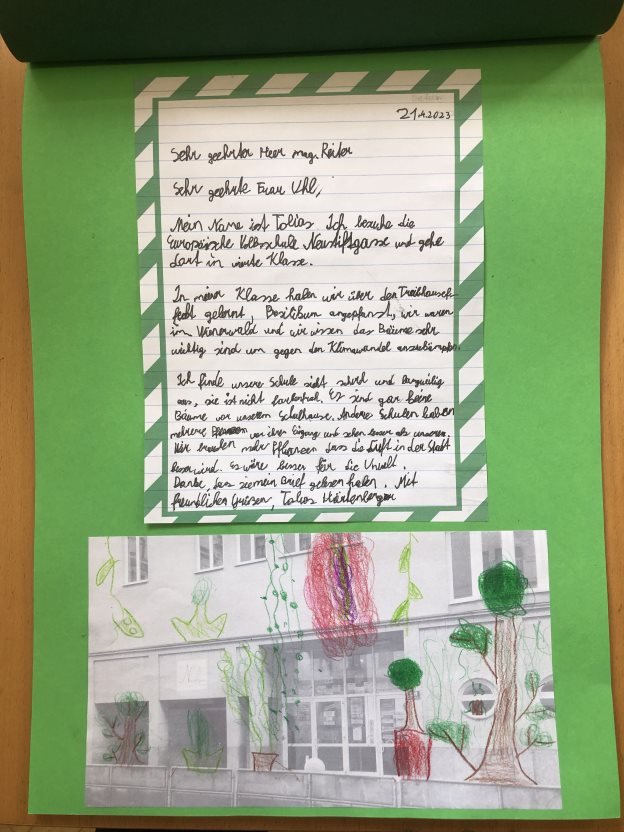 21.4.2023
Sehr geehrter Herr mag. Reiter
Sehr geehrte Frau Uhl,
Mein Name ist Tobias. Ich besuche die
Europäische Volksschule Neustiftgasse und gehe
dort in vierte Klasse.
In meiner Klasse haben wir über den Treibhausef-
fekt gelernt, Basilikum angepflanzt, wir waren
im Wienerwald und wir wissen das Bäume sehr
wichtig sind um gegen den Klimawandel anzukämpfen.
Ich finde unsere Schule sieht und langweilig
aus, sie ist nicht farbenfroh. Es sind gar keine
Bäume vor unserem Schulhause. Andere Schulen haben
mehrere vor ihrer Eingang und sehen besser als unserer.
Wir mehr Pflanzen dass die Luft in der Stadt
besser wird. Es wäre besser für die Umwelt.
Danke das sie mein Brief gelesen haben. Mit
freundlichen Grüssen, Tobias